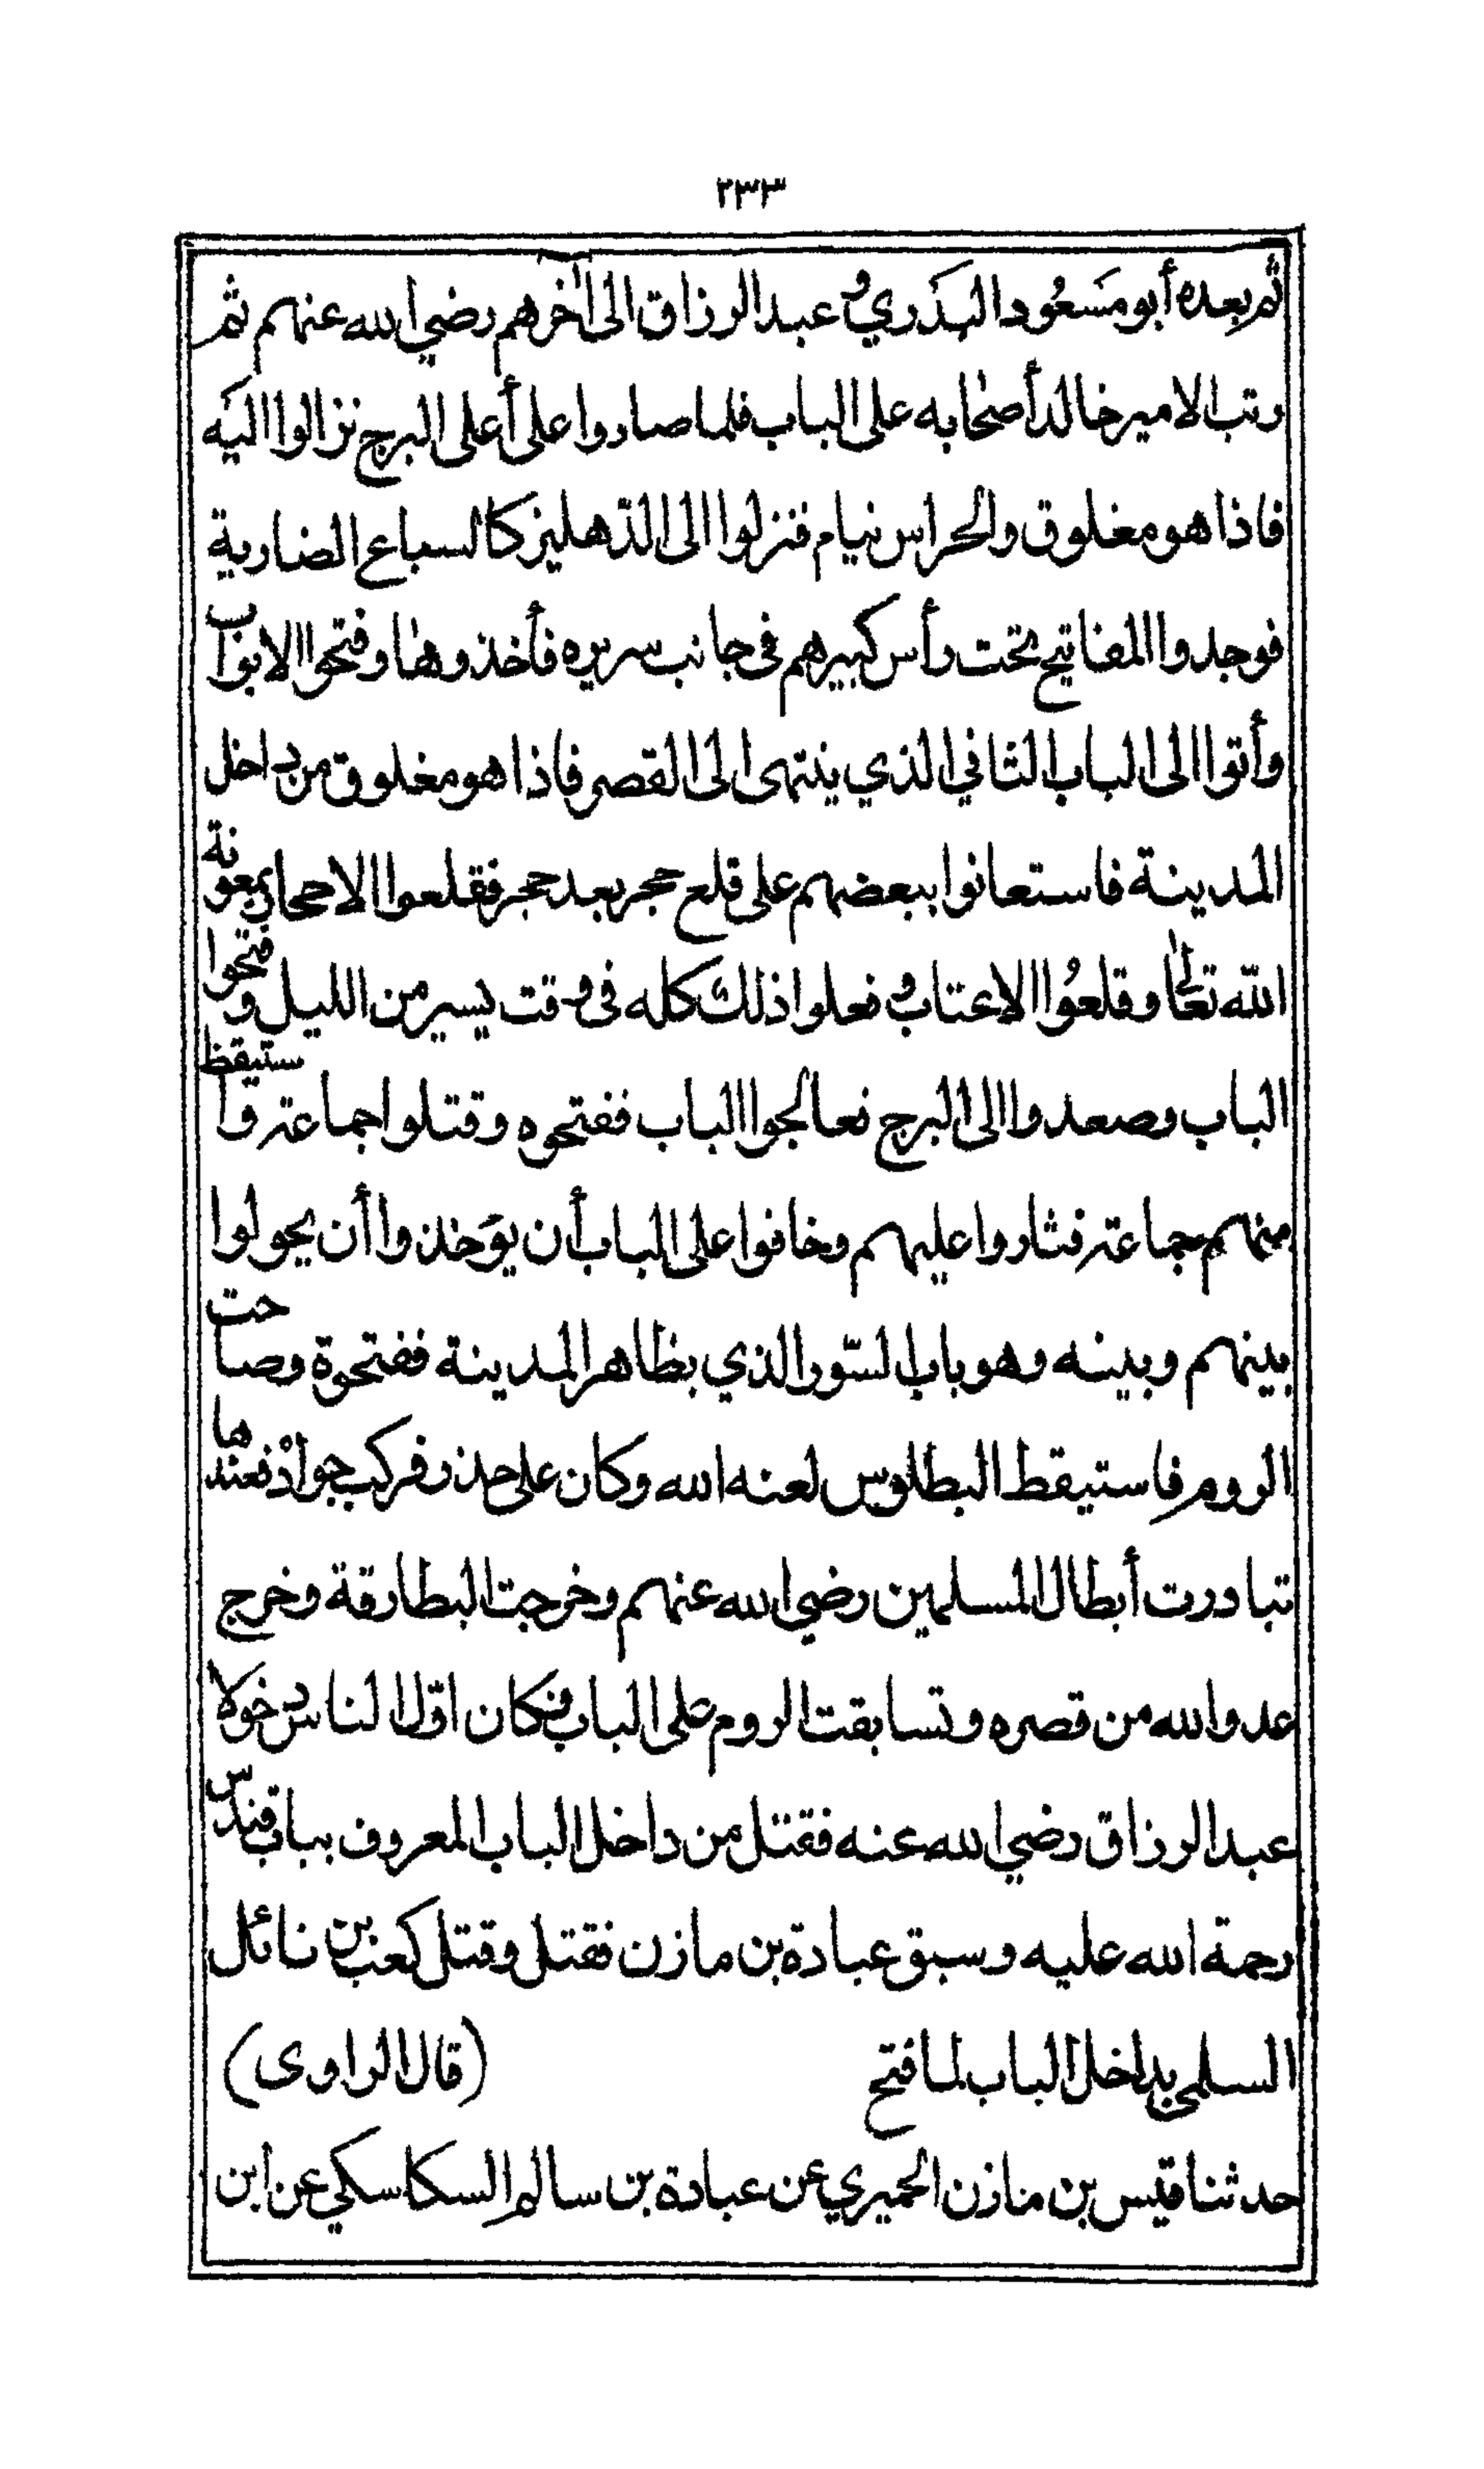 ٢٣٣
ثم بعده أبو مسعود البدري و عبد الرزاق الى اٰخرهم رضي الله عنهم ثم
رتب الامير خالد أصحابه على الباب فلما صاروا على أعلى البرج نزالوا اليه
فاذا هو مغلوق والحراس نيام فنزلوا الى الدّهليز كالسباع الضارية
فوجدوا المفاتيح تحت رأس كبيرهم فى جانب سريره فأخذوها وفتحوا الابواب
وأتوا الى الباب الثاني الذي ينتهى الى القصر فاذا هو مغلوق من داخل
المدينة فاستعانوا ببعضهم على قلع حجر بعد حجر فقلعوا الاحجار بمعونة
الله تعالى وقلعُوا الاعتاب و فعلوا ذلك كله فى وقت يسير من الليل وفتحوا
الباب وصعدوا الى البرج فعالجوا الباب ففتحوه وقتلوا جماعة واستيقظ
منهم جماعة فثاروا عليهم وخافوا على الباب أن يؤخذ وا أن يحولوا
بينهم وبينه وهو باب السّور الذي بظاهر المدينة ففتحوة وصاحت
الروم فاستيقط البطلوس لعنه الله وكان على حذر فركب جوادْ فعندها
تبادرت أبطال المسلمين رضي الله عنهم وخرجت البطارقة وخرج
عدو الله من قصره وتسابقت الروم على الباب فكان اوّل الناس دخولا
عبد الرزاق رضي الله عنه فقتل من داخل الباب المعروف بباب قندس
رحمة الله عليه وسبق عبادة بن مازن فقتل وقتل كعب بن نائل
السلمي بداخل الباب لما فتح (قال الراوى)
حدثنا قيس بن مازن الحميري عن عبادة بن سالم السكاسكي عن ابن